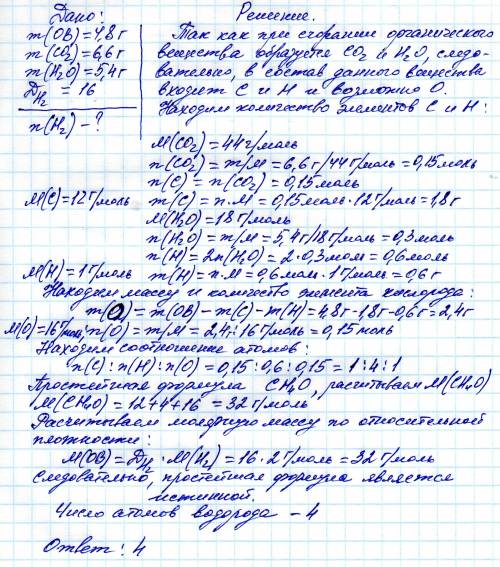 Дано:
m(ОВ) = 4,8г
m(CO₂) = 6,6г
m(H₂O) = 5,4г
D_H₂ = 16
n(H₂) – ?
Решение.
Так как при сгорании органического
вещества образуется CO₂ и H₂O, следо-
вательно, в состав данного вещества
входит C и H и возможно O.
Находим количество элементов C и H:
M(CO₂) = 44г/моль
n(CO₂) = m/M = 6,6г/44г/моль = 0,15моль
n(C) = n(CO₂) = 0,15моль
M(C)=12г/моль m(C) = n·M = 0,15моль·12г/моль = 1,8г
M(H₂O) = 18г/моль
n(H₂O) = m/M = 5,4г/18г/моль = 0,3моль
n(H) = 2n(H₂O) = 2·0,3моль = 0,6моль
M(H) = 1г/моль m(H) = n·M = 0,6моль·1г/моль = 0,6г
Находим массу и количество элемента кислорода:
m(O) = m(ОВ) – m(C) – m(H) = 4,8г-1,8г-0,6г = 2,4г
M(O)=16г/моль, n(O) = m/M = 2,4г:16г/моль = 0,15моль
Находим соотношение атомов:
n(C) : n(H) : n(O) = 0,15:0,6:0,15 = 1:4:1
Простейшая формула CH₄O, расчитываем M(CH₄O)
M(CH₄O) = 12+4+16 = 32г/моль
Расчитываем молярную массу по относительной
плотности:
M(ОВ) = D_H₂·M(H₂) = 16·2г/моль = 32г/моль
следовательно, простейшая формула является
истинной.
Число атомов водорода – 4
Ответ: 4